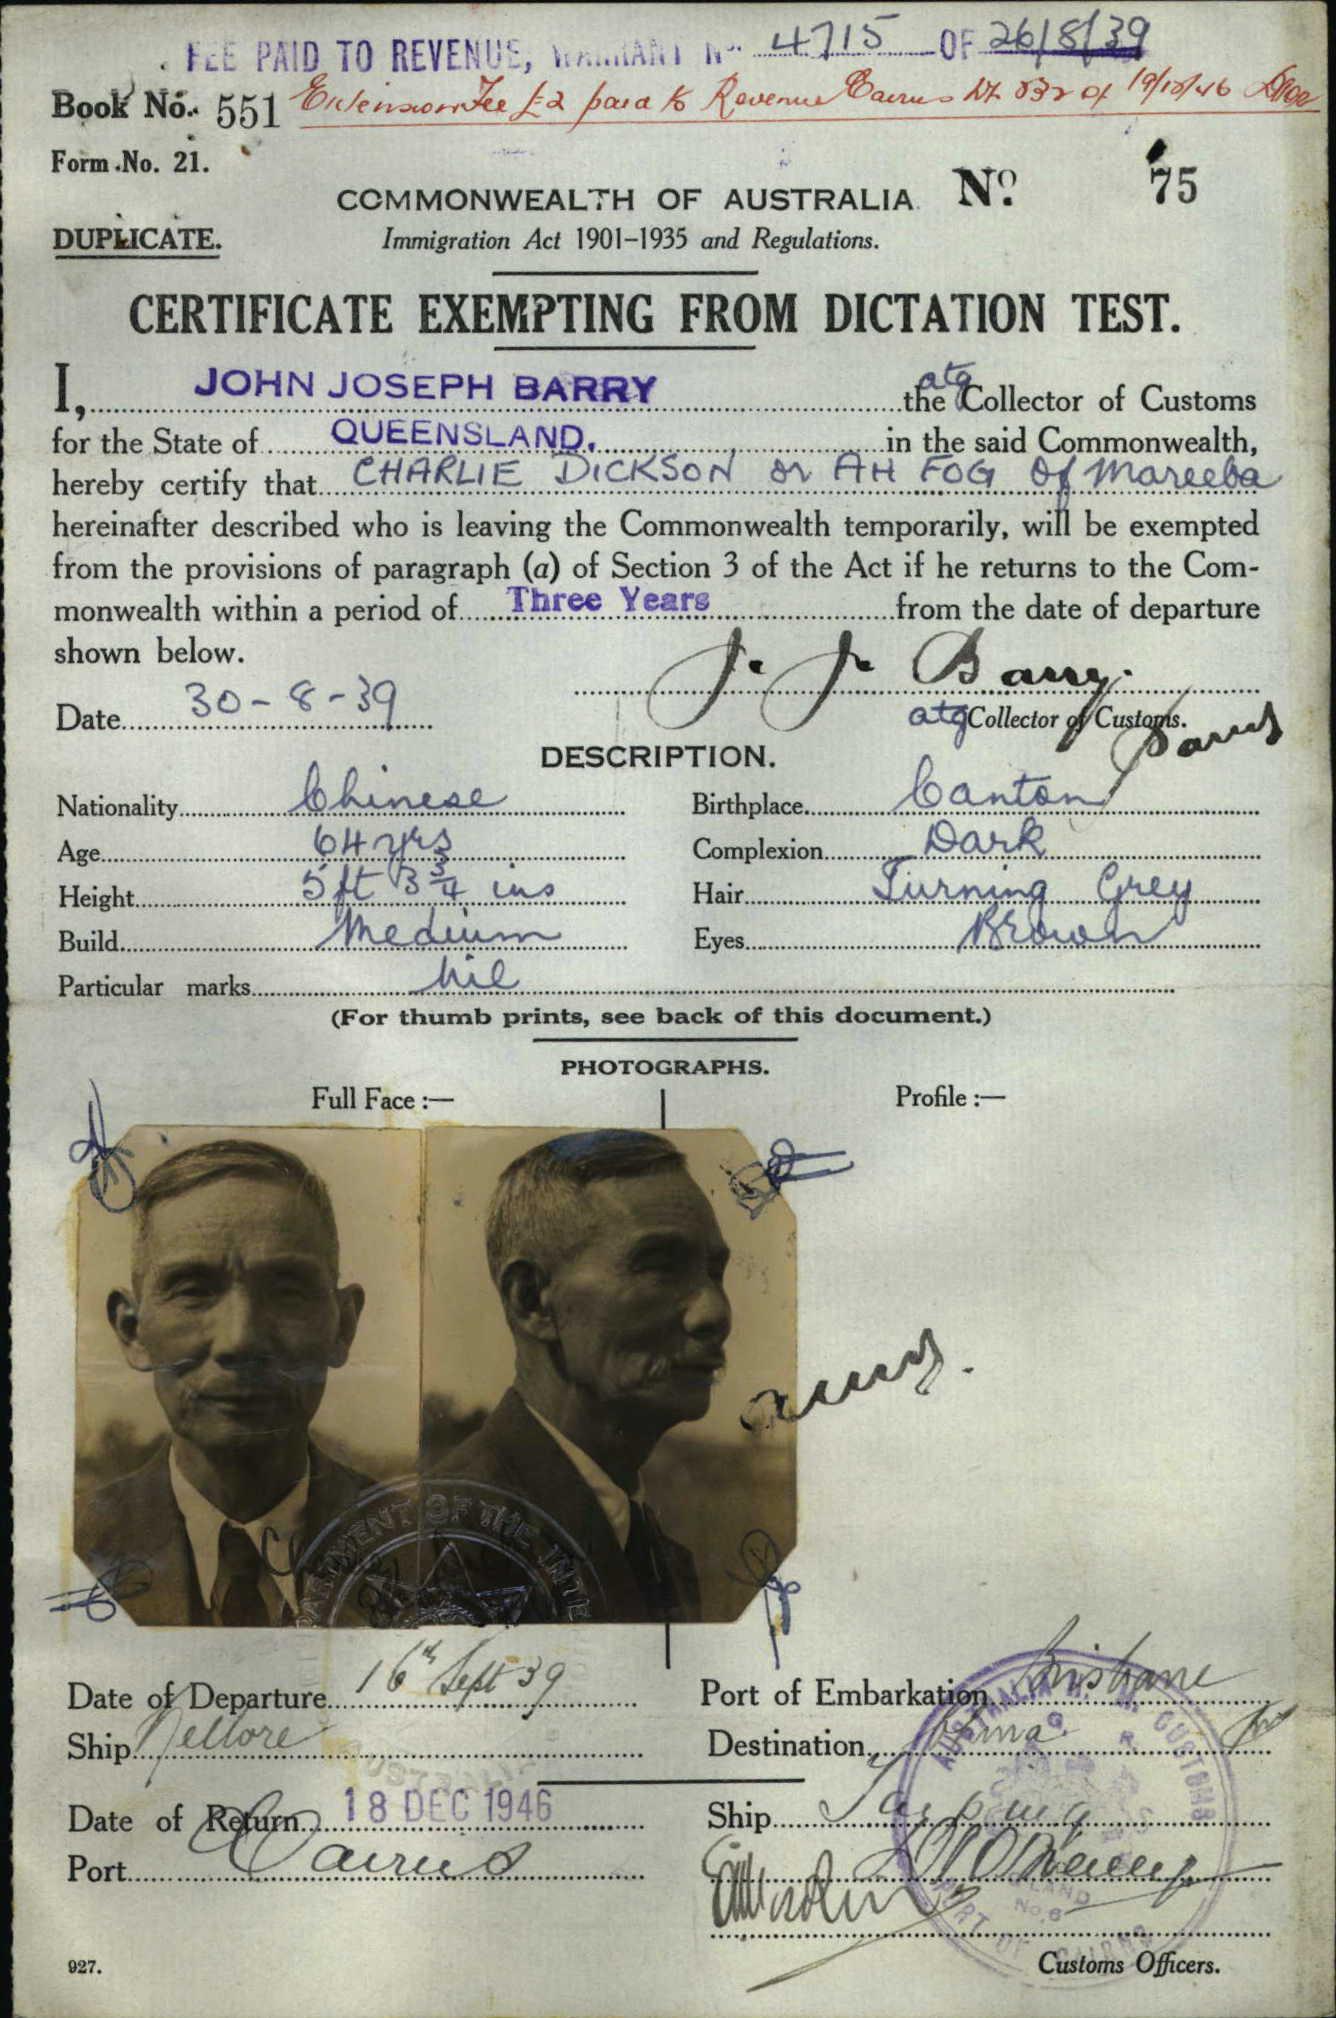 FEE PAID TO REVENUE, WARRANT No. 4715 OF 26/8/39
Book No. 551 Extension Fee £2 paid to Revenue Cairns of 19/12/46
Form No. 21.
COMMONWEALTH OF AUSTRALIA. No. 75
DUPLICATE. Immigration Act 1901-1935 and Regulations.
CERTIFICATE EXEMPTING FROM DICTATION TEST.
I, JOHN JOSEPH BARRY the atg Collector of Customs
for the State of QUEENSLAND. in the said Commonwealth,
hereby certify that CHARLIE DICKSON or AH FOG of Mareeba
hereinafter described who is leaving the Commonwealth temporarily, will be exempted
from the provisions of paragraph (a) of Section 3 of the Act if he returns to the Com-
monwealth within a period of Three Years from the date of departure
shown below.
J. J. Barry.
Date 30-8-39 atg Collector of Customs.
DESCRIPTION.
Nationality Chinese Birthplace Canton
Age 64 yrs Complexion Dark
Height 5ft 3 3/4 ins Hair Turning Grey
Build Medium Eyes Brown
Particular marks Nil
(For thumb prints, see back of this document.)
PHOTOGRAPHS.
Full Face :— Profile :—
DEPARTMENT OF THE INTE
Date of Departure 16th Sept 39 Port of Embarkation Brisbane
Ship Nellore Destination China
Date of Return 18 DEC 1946 Ship Taiping
Port Cairns
AUSTRALIA CUSTOMS
No. 6
PORT OF CAIRNS
927. Customs Officers.